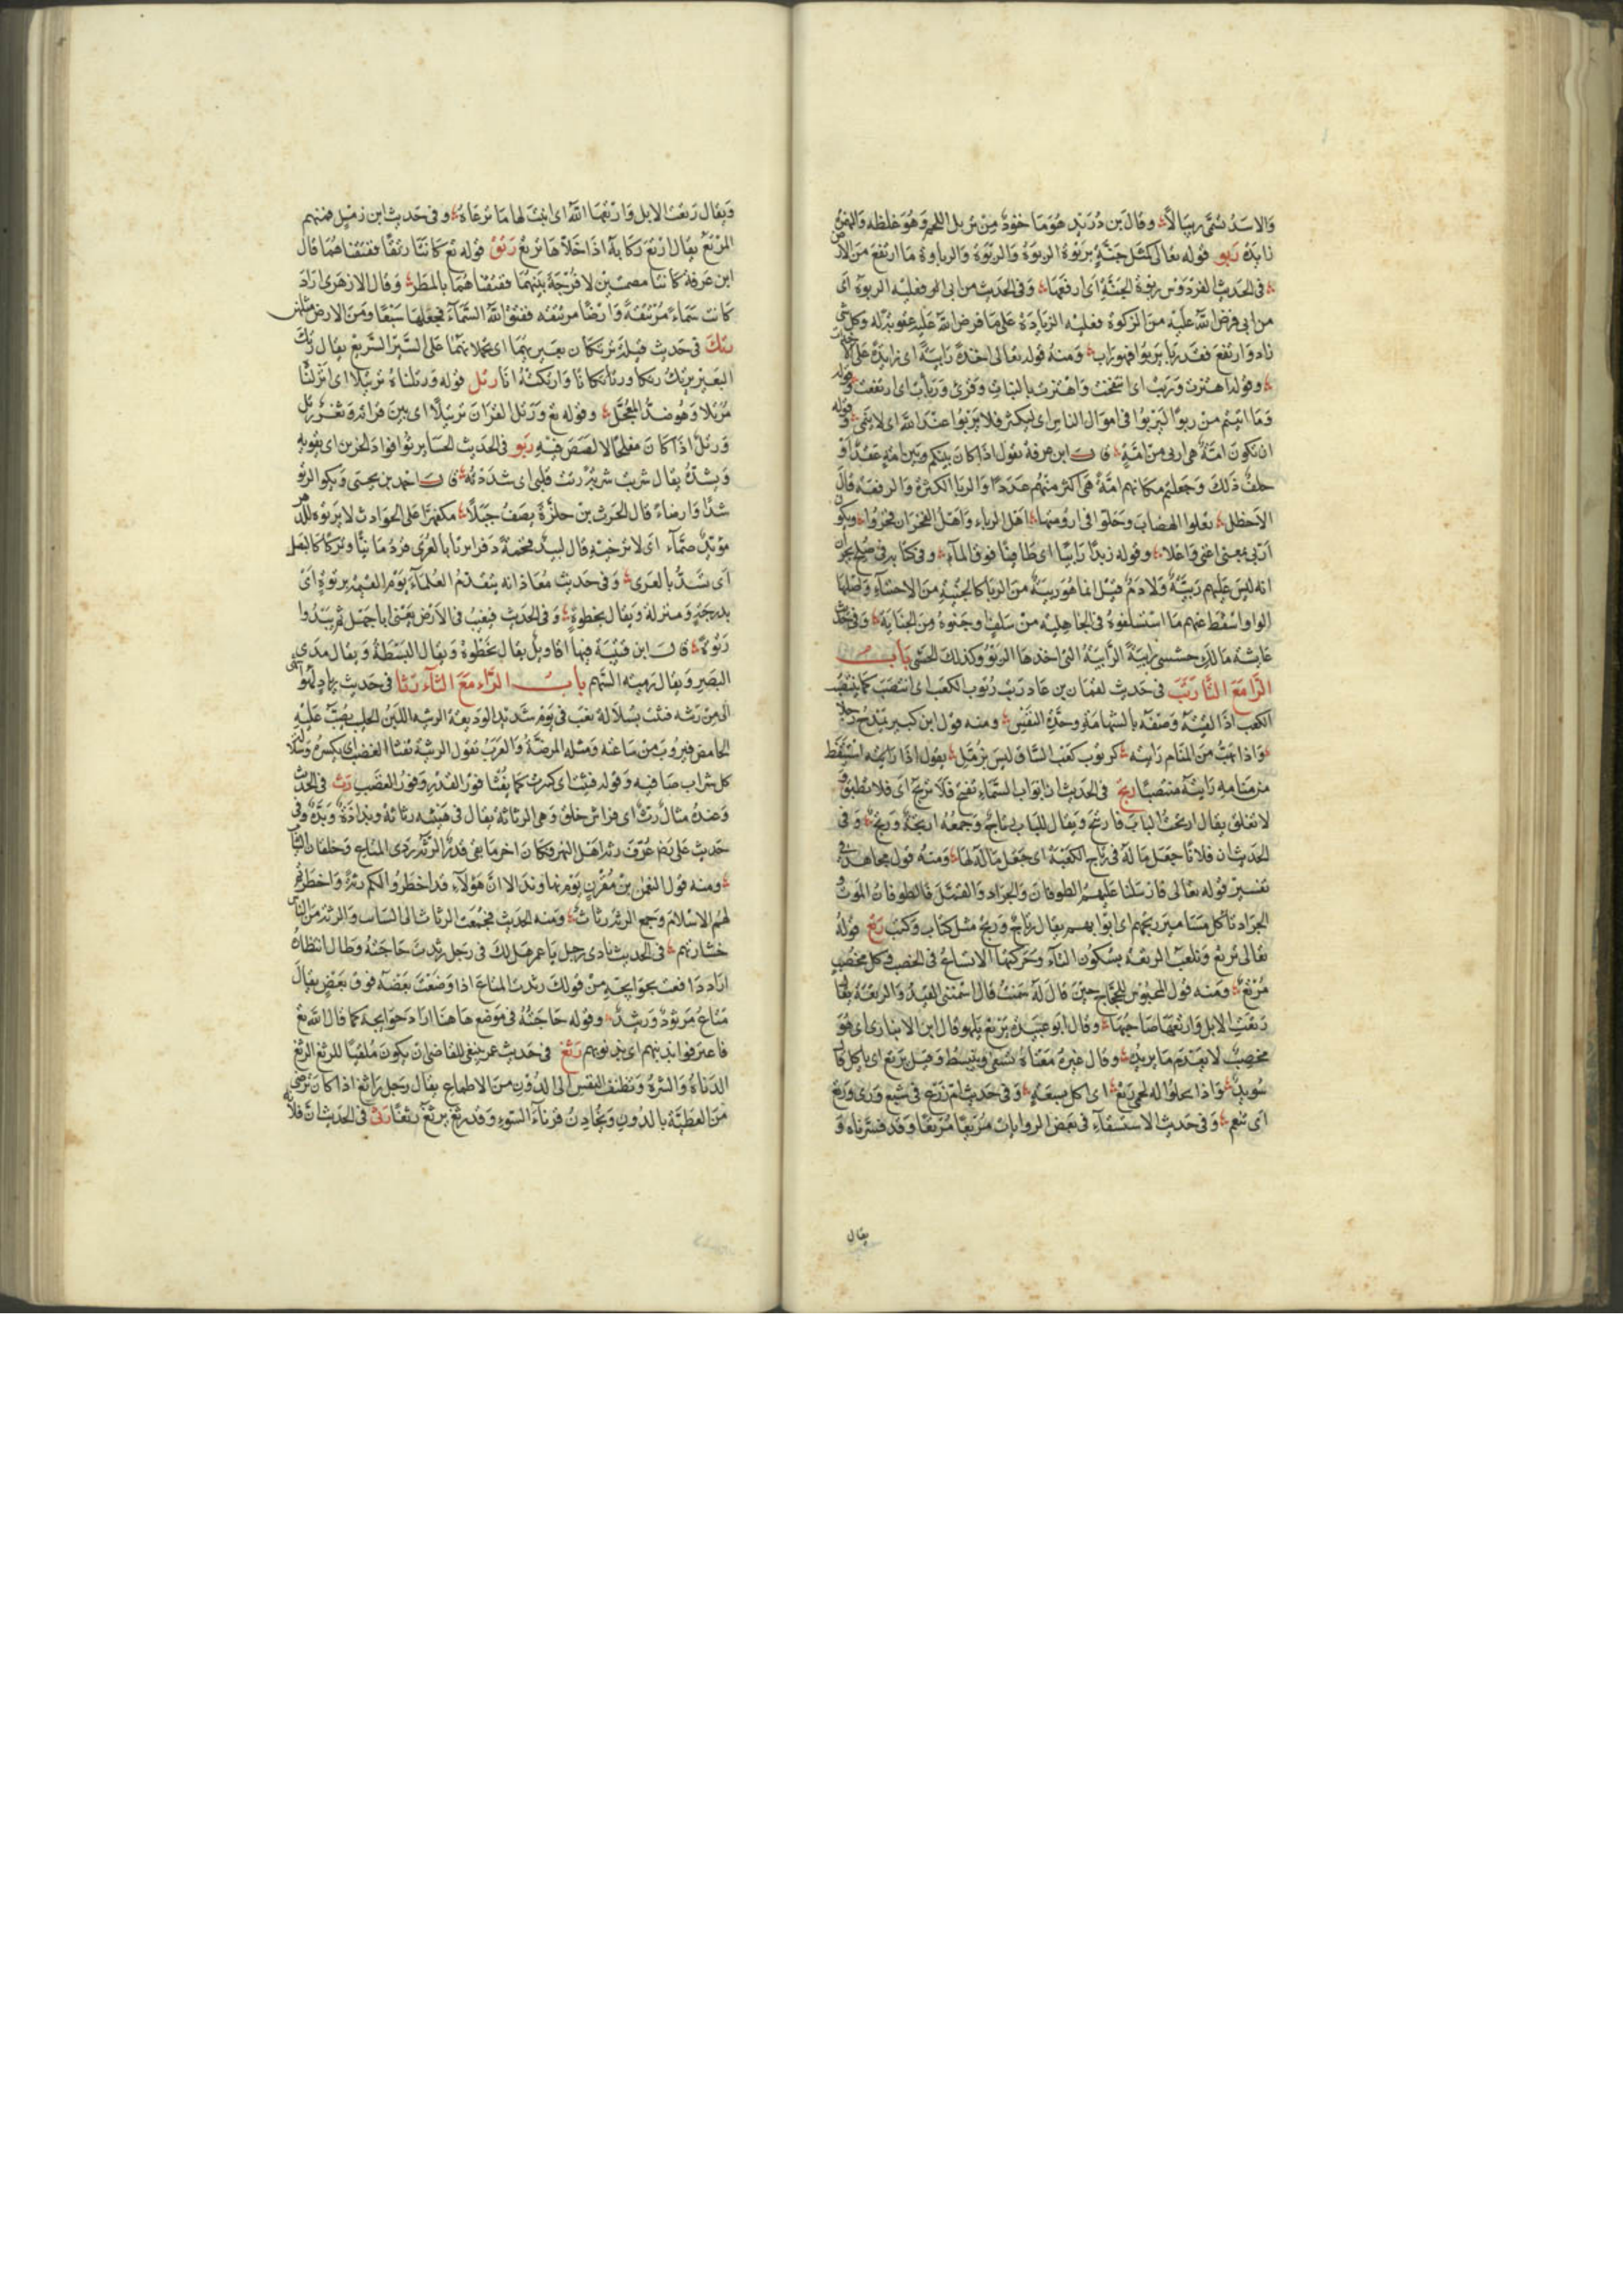 والاسد تسمى ريبالا وقال بن دريد هو ما خوذ من تربل اللحم وهو غلظه والهمز
زايدة ربو قوله تعالى كمثل جنة بربوة الربوة والربوة والرباوة ما ارتفع من الارض
في الحديث الفردوس ربوة الجنة اى ارفعها وفى الحديث من ابى فعليه الربوة اى
من ابى فرض الله عليه من الزكوة فعليه الزيادة على ما فرض الله عليه عقوبة له وكل شى
زاد وارتفع فقد ربا يربوا فهو راب ومنه قوله تعالى اخذة رابية اى زايدة على
وقوله اهتزت وربت اى انتفخت واهتزت بالنبات وقرئ وربأت اى ارتفعت وقوله
وما اتيتم من ربوا ليربوا فى اموال الناس اى ليكثر فلا يربوا عند الله اى لا ينمى وقوله
ان تكون امة هى اربى من امة قال ابن عرفة يقول اذا كان بينكم وبين امة عقد او
حلف ذلك وجعلتم مكانهم امة هى اكثر منهم عددا والربا الكثرة والرفعة قال
الاخطل تعلوا الهضاب وحلوا فى ارومتها اهل الرباء واهل الفخر ان فخروا ويكون
اربى بمعنى اغنى وقوله زبدا رابيا اى طافيا فوق الماء وفى كتابه فى صلح نجران
انه ليس عليهم ربية ولا دم قيل انما هو ربية من الربا كالحبية من الاحتباء واصلها
الواو اسقط عنهم ما استسلفوه فى الجاهلية من سلف وجنوه من الجناية وفى حديث
عايشة مالك حشيى رابية الرابية التى اخذها الربو وكذلك الحشى باب
الرا مع التا رتب فى حديث لقمان بن عاد رتب رتوب الكعب اى انتصب كما ينتصب
الكعب اذا القيته وصفه بالشهامة وحدة النفس ومنه قول ابن كبير يمدح رجلا
واذا يهب من المنام رايته كرتوب كعب الساق ليس بزمل يقول اذا رايته استيقظ
من منامه رايته منتصبا رتج فى الحديث ان ابواب السماء تفتح فلا ترتج اى فلا تطبق و
لا تغلق يقال ارتجت الباب فارتج ويقال للباب رتاج وجمعه ارتجة ورتج وفى
الحديث ان فلانا جعل ماله فى رتاج الكعبة اى جعل ماله لها ومنه قول مجاهد فى
تفسير قوله تعالى فارسلنا عليهم الطوفان والجراد والقمل فالطوفان الموت و
الجراد تاكل مسامير رتجهم اى ابوابهم يقال رتاج ورتج مثل كتاب وكتب رتع قوله
تعالى نرتع ونلعب الرتعة بسكون التاء وحركتها الاتساع فى الخصب وكل مخصب
مرتع ومنه قول المحبوس للحجاج حين قال له سمنت قال اسمنني القيد والرتعة يقال
رتعت الابل وارتعها صاحبها وقال ابو عبيدة يرتع يلهو وقال ابن الانبارى اى هو
مخصب لا يعدم ما يريد وقال غيره معناه نسعى وينبسط وقيل يرتع اى ياكل قال
سويد واذا يخلوا له لحمى رتع اى اكل بسعة وفى حديث ام زرع فى شبع ورى ورتع
اى تنعم وفى حديث الاستسقاء فى بعض الروايات مرتعا مربعا وقد فسرناه و
يقال
ويقال رتعت الابل وارتعها الله اى انبت لها ما ترعاه وفى حديث ابن زميل فمنهم
المرتع يقال ارتع ركابه اذا خلاها ترتع رتق قوله تع كانتا رتقا ففتقناهما قال
ابن عرفة كانتا مصمتتين لا فرجة بينهما ففتقناهما بالمطر وقال الازهرى اراد
كانت سماء مرتتقة وارضا مرتتقة ففتق الله السماء فجعلها سبعا ومن الارض مثلهن
رتك فى حديث قيلة ترتكان بعيريهما اى تحملانهما على السير السريع يقال رتك
البعير يرتك رتكا ورتكانا وارتكته انا رتل قوله ورتلناه ترتيلا اى انزلناه
مرتلا وهو ضد المعجل وقوله تع ورتل القران ترتيلا اى بين قراته وثغر رتل
ورتل اذا كان مفلجا لا لصص فيه رتو فى الحديث الحسا يرتوا فواد الحزين اى يقويه
ويشده يقال شربت شربة رتت قلبى اى شددته قال احمد بن يحيى ويكون الرتو
شدا وارخاء قال الحرث بن حلزة يصف جبلا مكفهرا على الحوادث لا يرتوه للدهر
مويد صماء اى لا ترخيه قال لبيد فخمة دفراء ترتا بالعرى قردمانيا وتركا كالبصل
اى تشد بالعرى وفى حديث معاذ انه يتقدم العلماء يوم القيمة برتوة اى
بدرجة ومنزلة ويقال بخطوة وفى الحديث فيغيب فى الارض يعنى ابا جهل ثم يبدوا
رتوة قال ابن قتيبة فيها اقاويل يقال بخطوة ويقال البسطة ويقال مدى
البصر ويقال رمية السهم باب الراء مع الثاء رثا فى حديث زياد لهو اشهى
الى من رثه فثئت بسلالة ثغب فى يوم شديد الوديقة الرثيه اللبن الحليب يصب عليه
الحامض فيروب من ساعته ومثله المرضة والعرب تقول الرثيئة تفثأ الغضب اى يكسره وسلالة
كل شراب صافيه وقوله فثئت اى كسرت كما يفثا فور القدر وفور الغضب رث فى الحديث
وعنده مثال رث اى فراش خلق وهى الرثاثة يقال فى هيئته رثاثة وبذاذة وبذة وفى
حديث على رض عرف رثة اهل النهر فكان اخر ما بقى قدر الرثة ردى المتاع وخلقان الثياب
ومنه قول النعمن بن مقرن يوم نهاوند الا ان هولاء قد اخطروا لكم رثة واخطرتم
لهم الاسلام وجمع الرثة رثاث ومنه الحديث فجمعت الرثاث الى السايب والرثة من الناس
خشارتهم فى الحديث نادى رجل يا عمر هل لك فى رجل رثدت حاجته وطال انتظاره
اراد دافعت بحوايجه من قولك رثدت المتاع اذا وضعت بعضه فوق بعض يقال
متاع مرثود ورثيد وقوله حاجته فى موضع هاهنا اراد حوايجه كما قال الله تع
فاعترفوا بذنبهم اى بذنوبهم رثع فى حديث عمر ينبغى للقاضى ان يكون ملقيا للرثع الرثع
الدناة والشرة وتطنف النفس الى الدون من الاطماع يقال رجل راثع اذا كان يرضى
من العطية بالدون ويخادن قرناء السوء وقد رثع يرثع رثعا رثى فى الحديث ان فلانة